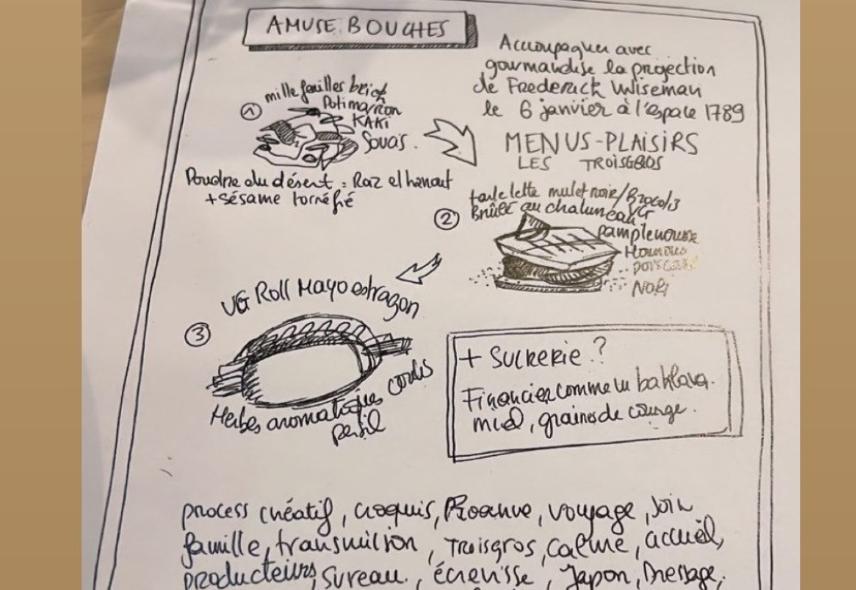 AMUSE BOUCHES
Accompagner avec
gourmandise la projection
de Frederick Wiseman
le 6 janvier à l'espace 1789
MENUS-PLAISIRS
LES TROISGROS
①
mille feuilles brick
Potimarron
KAKI
Poudre du désert : Raz el hanout
+ sésame torréfié
②
tartelette mulet noir/Brocolis
Brûlé au chalumeau
pamplemousse
Houmous
NORI
③
VG Roll Mayo estragon
Herbes aromatiques
persil
+ SUCRERIE ?
Financier comme un baklava.
miel, graines de courge.
process créatif, croquis, voyage,
famille, transmission, Troisgros, calme, accueil,
producteurs, sureau, écrevisse, Japon,